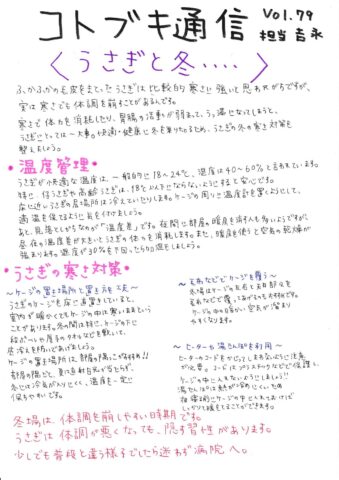 コトブキ通信
Vol.79
担当 吉永
〈うさぎと冬‥‥〉
ふかふかの毛皮をまとったうさぎは比較的寒さに強いと思われがちですが、
実は寒さでも体調を崩すことがあるんです。
寒さで体力を消耗したり、胃腸の活動が弱まって、うっ滞になってしまうと、
うさぎにとっては一大事。快適・健康に冬を乗りきるため、うさぎの冬の寒さ対策も
整えましょう。
・温度管理・
うさぎが快適な温度は、一般的に18〜24℃、湿度は40〜60%と言われています。
特に仔うさぎや高齢うさぎは、18℃以下にならないようにすると安心です。
床に近いうさぎの居場所は冷えたりします。ケージの周りに温度計を置くようにして、
適温を保てるように気を付けましょう。
あと、見落としがちなのが「温度差」です。夜間に部屋の暖房を消す人も多いようですが、
昼夜の温度差が大きいとうさぎの体力を消耗します。また、暖房を使うと空気の乾燥が
強まります。湿度が30%を下回ったら加湿をしましょう。
・うさぎの寒さ対策・
〜ケージの置き場所と置き方を工夫〜
うさぎのケージを床に直置きしていると、
室内が暖かくてもケージの中は寒いままという
ことがあります。冬の間は特に、ケージの下に
段ボールや厚手のタオルなどを敷いて、
底冷えを防いであげましょう。
ケージの置き場所は、部屋の隅っこがおすすめ!!
部屋の隅だと、夏は直射日光が当たらず、
冬には冷気が入りにくく、温度を一定に
保ちやすいです。
〜毛布などでケージを覆う〜
冬場はケージの左右と天面部分を
毛布などで覆ってあげるのも大切です。
ケージ中の暖かい空気が溜まり
やすくなります。
〜ヒーターや湯たんぽを利用〜
ヒーターのコードをかじってしまわないように注意
が必要。コードはプラスチックなどで保護し、
ケージの中に入れないようにしましょう!!
湯たんぽは熱が冷めにくいため
就寝前にケージの中に入れてあげれば
しっかりと暖をとることができます。
冬場は、体調を崩しやすい時期です。
うさぎは体調が悪くなっても、隠す習性があります。
少しでも普段と違う様子でしたら迷わず病院へ。